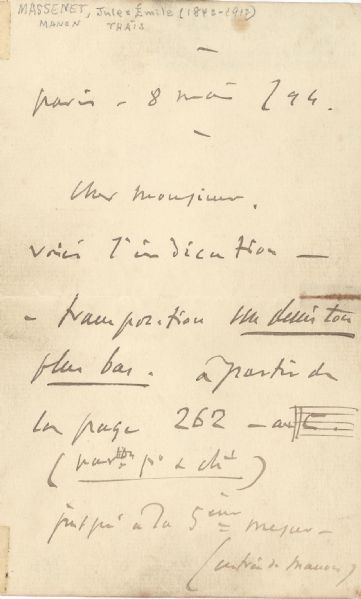 MASSENET, Jules Émile (1842-1912)
MANON THAÏS
Paris - 8 mai /94.
Cher Monsieur,
voici l'indication —
- transposition un demi ton
plus bas. à partir de
la page 262 - au C.
jusqu'à la 5ème mesure -
(entrée de Manon)